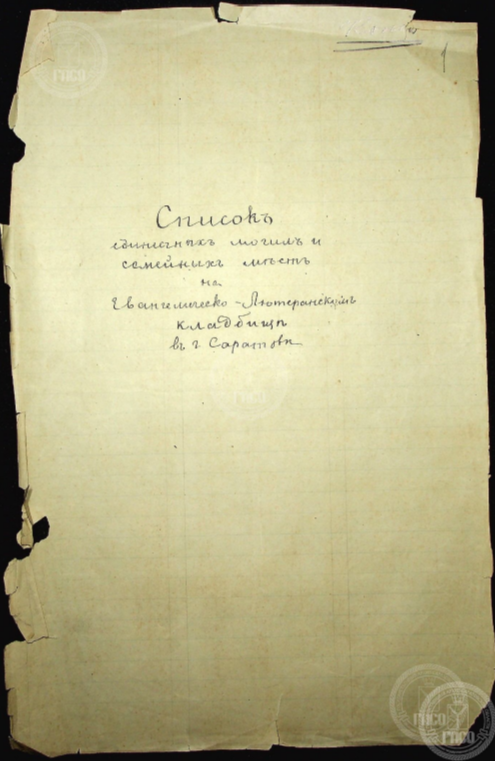 1
Списокъ
единичныхъ могилъ и
семейныхъ мѣстъ
на
Евангелическо-Лютеранскомъ
кладбищѣ
въ г. Саратовѣ
ГПСО
ГПСО
ГПСО